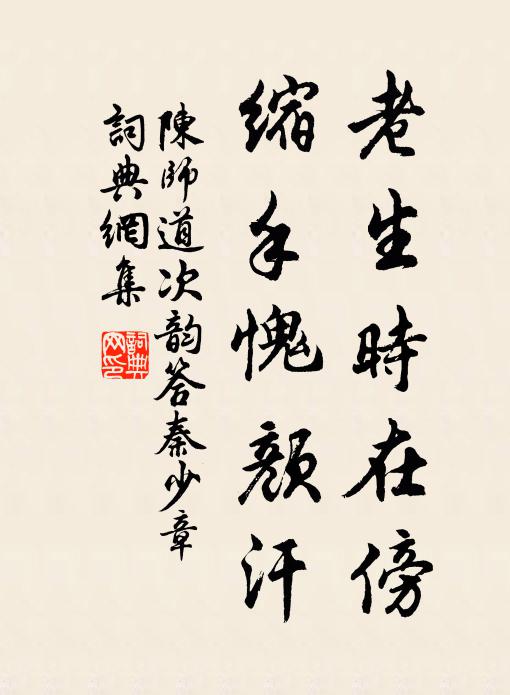 老生時在傍
縮手愧顏汗
陳師道次韵答秦少章
詞典網集
詞典
网印